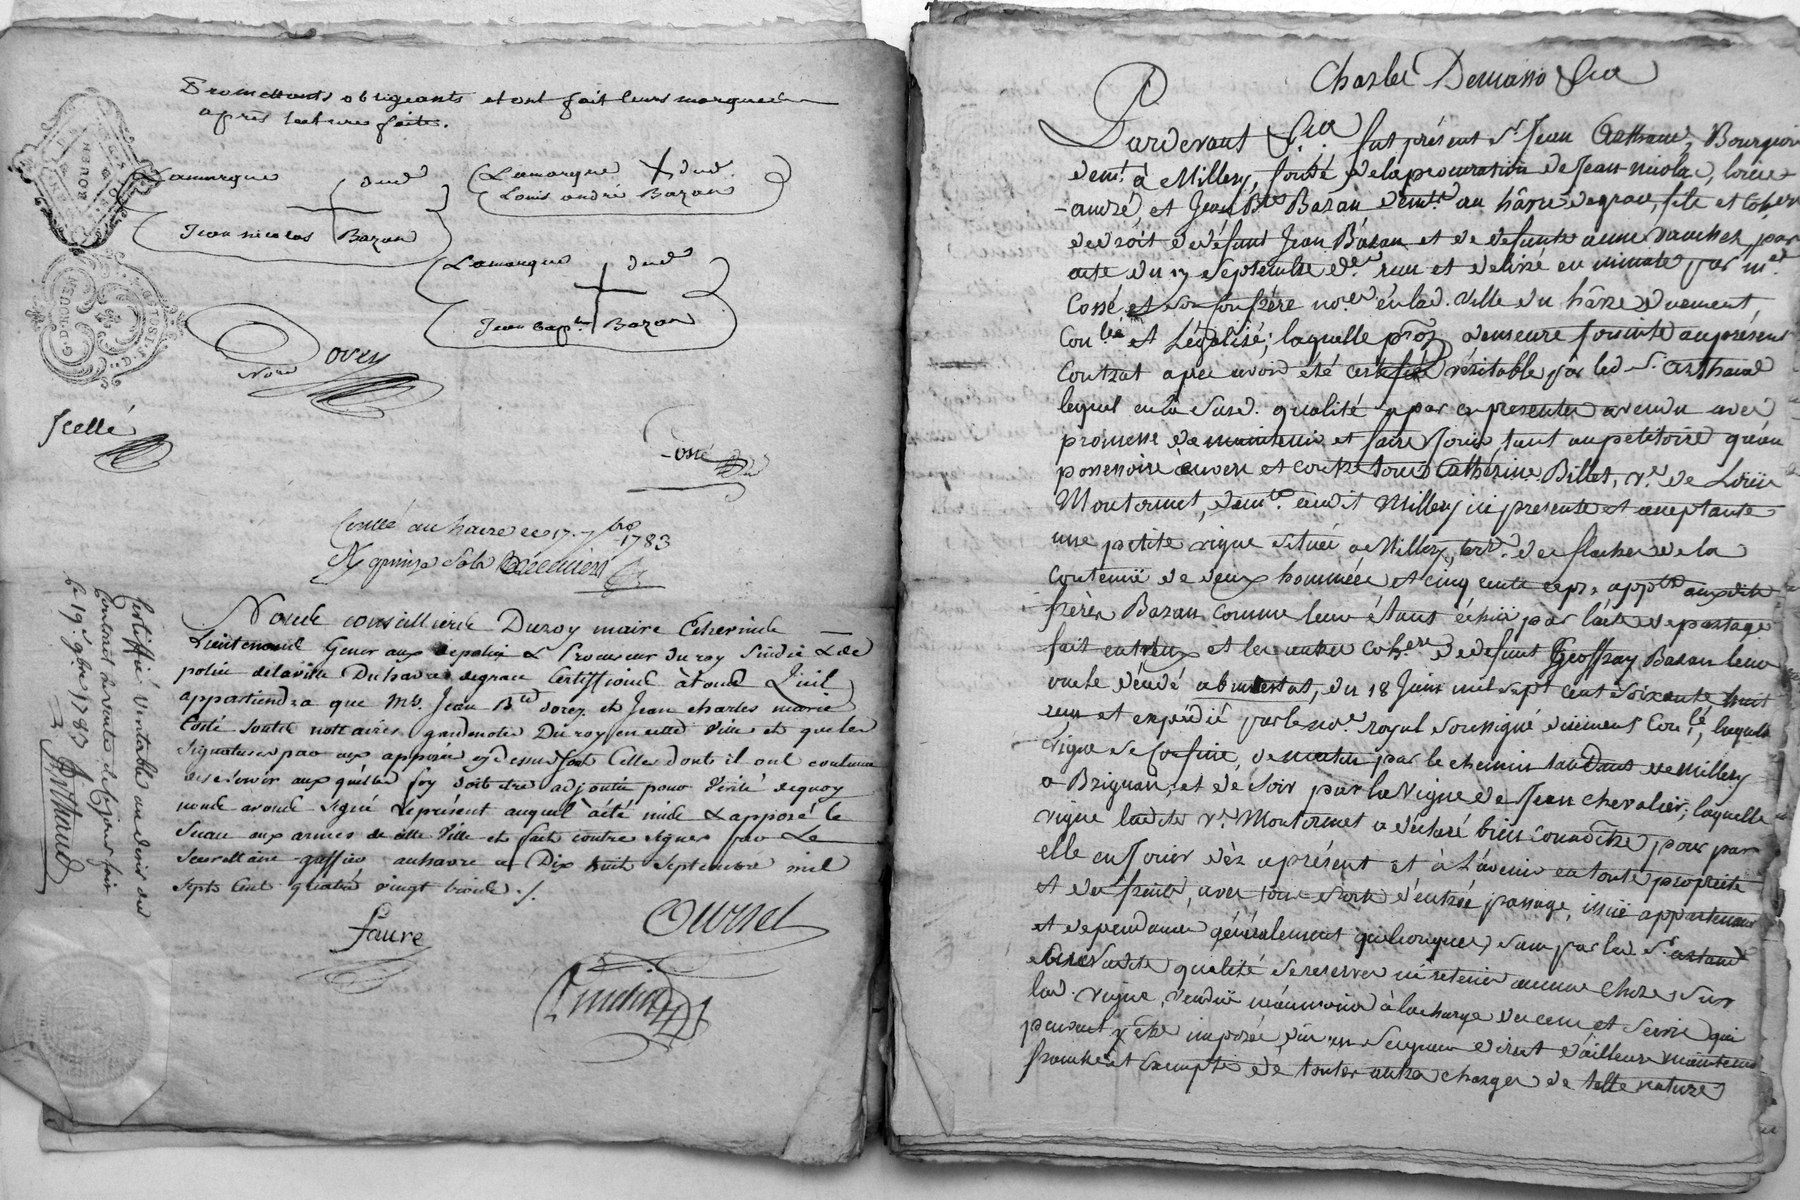 Promettants obligeants et ont fait leurs marques
après lecture faite.
Lamarque dud. Jean nicolas Bazan
Lamarque dud. Louis andré Bazan
Lamarque dud. Jean bapte. Bazan
Dorey
Nore
Scellé
Cossé
Conllé au havre ce 17. 7bre 1783
quinze sols
Nous conseillers Du roy maire Echevins
Lieutenant Gener aux de police & Procureur du roy Sindic & de
police de la ville Du havre de grace Certiffions à tous Quil
appartiendra que Mrs. Jean Bte dorey et Jean charles marie
Cossé sont nottaires gardenottes Du roy en cette Ville et que les
signatures par eux apposées cy dessus sont Celles dont il ont coutume
de se servir aux quelles foy doit etre adjoutée pour Vérité de quoy
nous avons Signé le présent auquel à été mis & apposé le
Sceau aux armes de cette Ville et fait contre signer par Le
Secrettaire greffier au havre ce Dix huit Septembre mil
sept Cent quatre vingt trois ./.
faure
Certiffié Veritable au desir du
Contrat de vente de ce jour fait
Le 19e. 9bre 1783
Arthaud
ROUEN
G.D. ROUEN
Pardevant fut présent Sr. Jean Arthaud, Bourgeois
demt. à Millery, fondé de la procuration de Jean-nicolas, louis
-andré, et Jean Bte Bazan demts. au hâvre de grace, fils et Coher
de droit de défunt Jean Bazan et de defunte anne vauchez, par
acte du 17 Septembre der. reçu et délivré en minute par me.
Cossé et son confrère nores. en lad. Ville du hâvre duement
Conlée et Légalisé; laquelle pron demeure jointe au présent
Contrat apres avoir été certifiée véritable par led Sr. arthaud
lequel en la Susd. qualité a par ces presentes vendu avec
promesse de maintenir et faire Jouir tant au petitoire qu'au
possessoire envers et contre tous à Cathérine Billet, ve. de Louis
Montermet, demte. audit Millery ici presente et acceptante
une petite vigne située à Millery, terre. des flaches de la
Contenüe de deux hommées et cinq cents ceps, appte auxdits
frères Bazan comme leur étant échüe par l'acte de partage
fait entr'eux et les autres cohers de defunt Geoffray Bazan leur
oncle décédé abintestat, du 18 Juin mil sept cent soixante huit
reçu et expédié par le nore. royal soussigné düement Conlé, laquelle
vigne Se Confine, de matin par le chemin tendant de Millery
a Brignais, et de Soir par la Vigne de Jean Chevalier; laquelle
vigne ladite Ve. Montermet a déclaré bien connoître pour par
elle en Jouir dèz aprésent et à L'avenir en toute propriété
et des fruits, avec tous droits d'entrée passage, issüe appartenances
et dependances généralement quelconques, sans par led Sr. artaud
qualité Se reserver ni retenir aucune chose Sur
lad. vigne, Vendüe néanmoins à la charge des cens et Servis qui
peuvent y etre imposés d'un Seigneur direct d'ailleurs maintenue
franche et exempte de toutes autres charges de telle nature